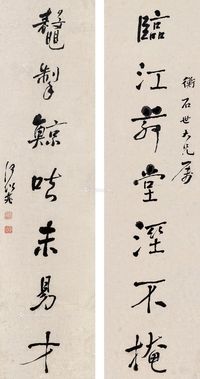 臨江堂不掩
衡石世大兄屬
鼇掣鯨呿未易才
何紹基